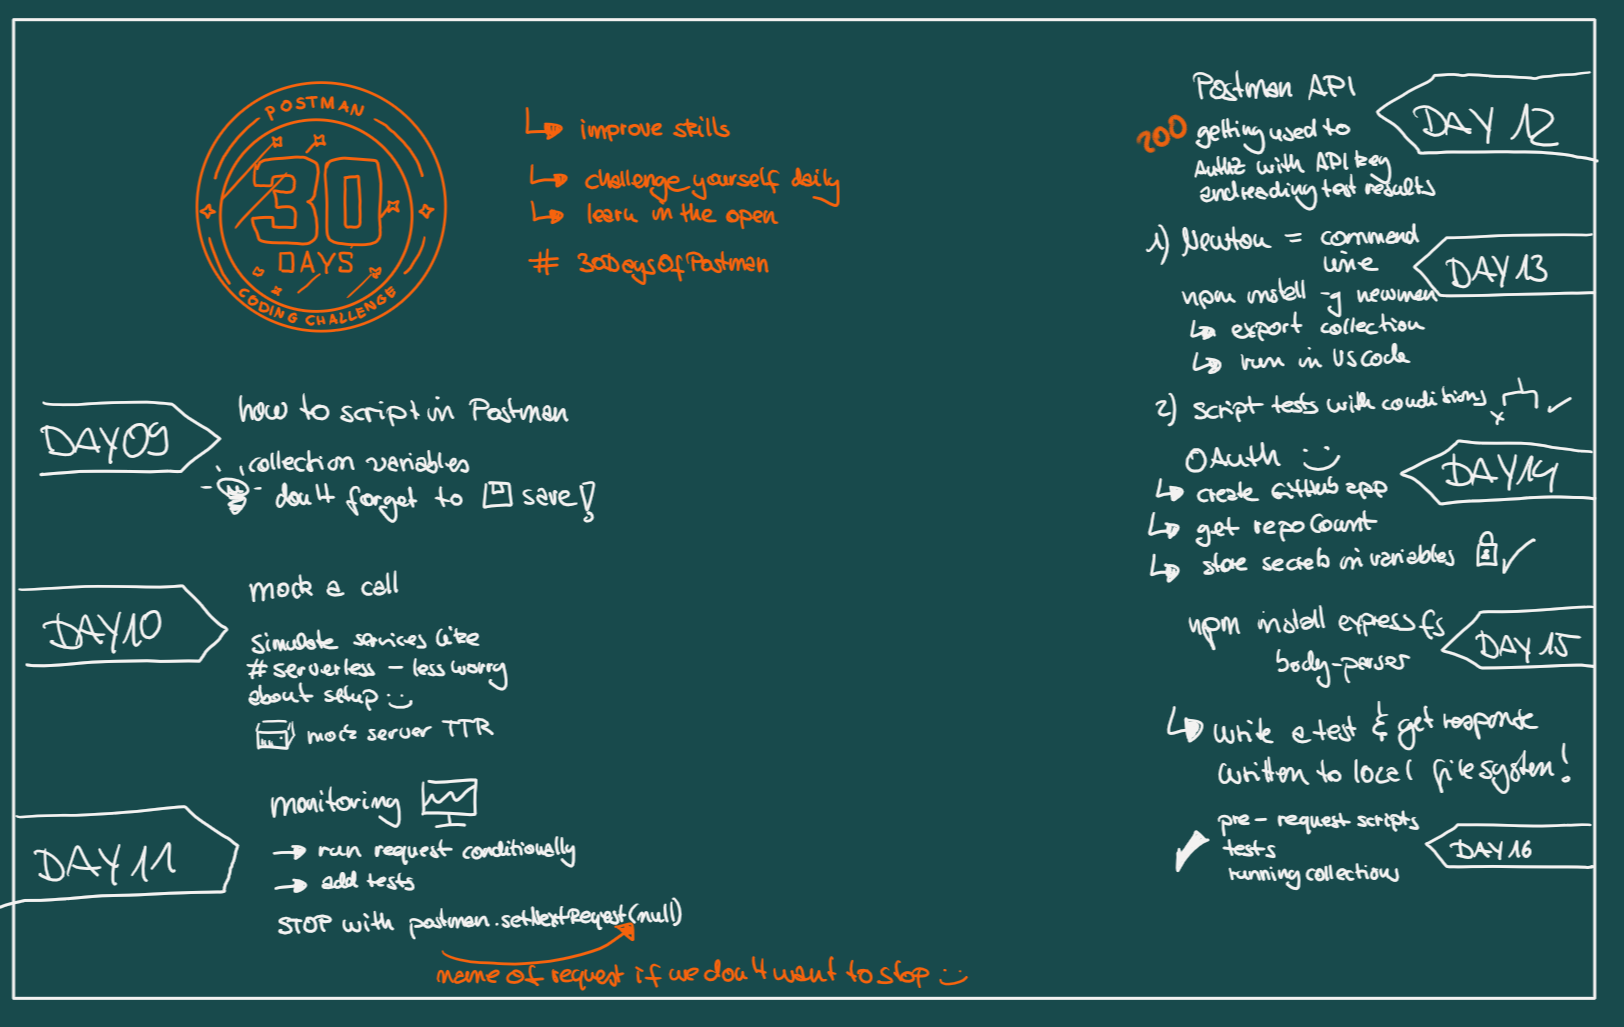 POSTMAN
30
DAYS
CODING CHALLENGE
improve skills
challenge yourself daily
learn in the open
# 30DaysOfPostman
DAY 09
how to script in Postman
collection variables
don't forget to save!
DAY 10
mock a call
Simulate services like
# serverless - less worry
about setup :)
mock server TTR
DAY 11
monitoring
→ run request conditionally
→ add tests
STOP with postman.setNextRequest(null)
name of request if we don't want to stop :)
DAY 12
Postman API
200 getting used to
AuthZ with API key
and reading test results
DAY 13
1) Newton = command
line
npm install -g newman
export collection
run in VS code
2) script tests with conditions x ✓
DAY 14
OAuth :)
create GitHub app
get repo Count
store secrets in variables ✓
DAY 15
npm install express fs
body-parser
write a test & get response
written to local file system!
DAY 16
pre-request scripts
tests
running collections